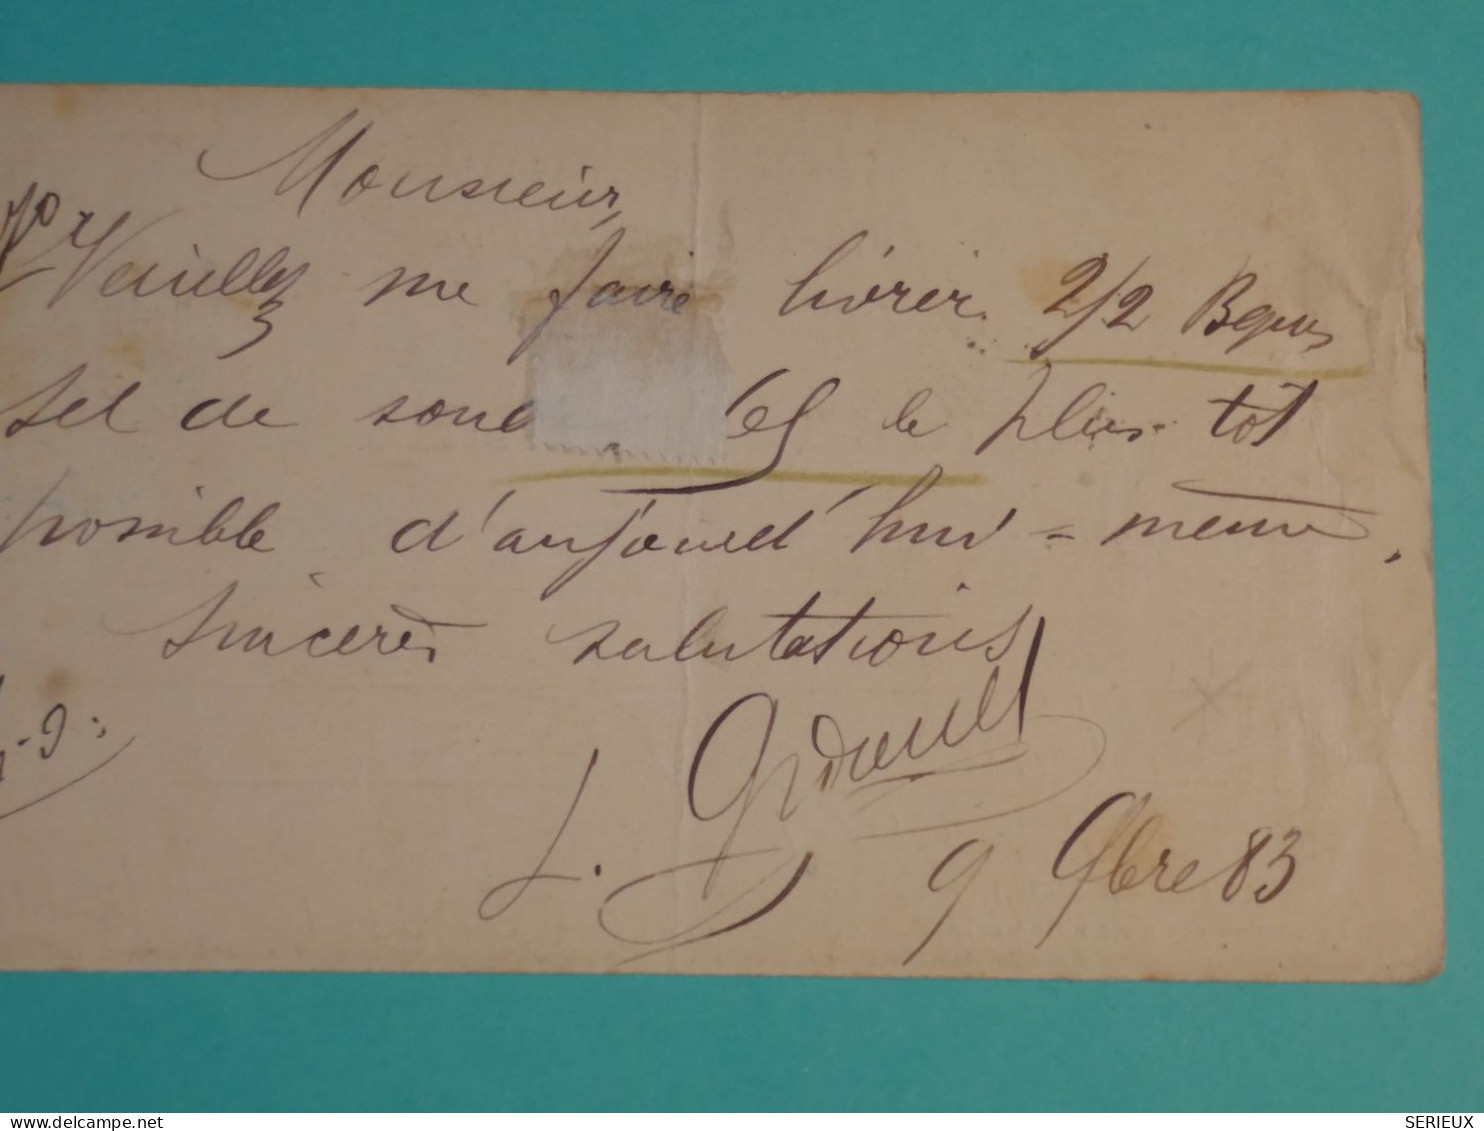 Monsieur,
Veuillez me faire livrer 2/2 Bques
sel de soud le plus tôt
possible d'aujourd'hui = meme.
Sincères salutations
L.
9 9bre 83
SERIEUX